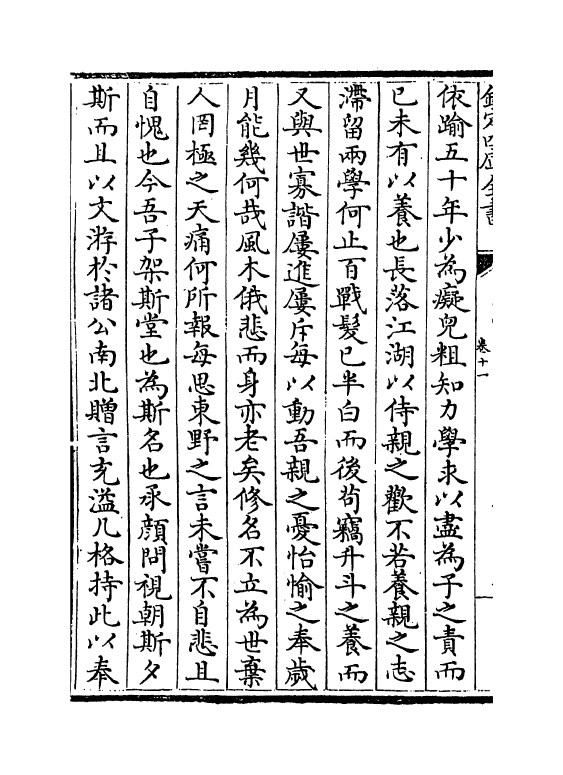 欽定四庫全書
卷十一
依踰五十年少為癡兒粗知力學求以盡為子之責而
已未有以養也長落江湖以侍親之歡不若養親之志
滯留兩學何止百戰髮已半白而後茍竊升斗之養而
又與世寡諧屢進屢斥每以動吾親之憂怡愉之奉歲
月能幾何哉風木俄悲而身亦老矣修名不立為世棄
人罔極之天痛何所報每思東野之言未嘗不自悲且
自愧也今吾子架斯堂也為斯名也承顔問視朝斯夕
斯而且以文游於諸公南北贈言充溢几格持此以奉